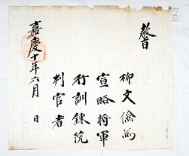 敎旨
柳文儉爲
宣略將軍
行訓鍊院
判官者
嘉慶十年六月 日